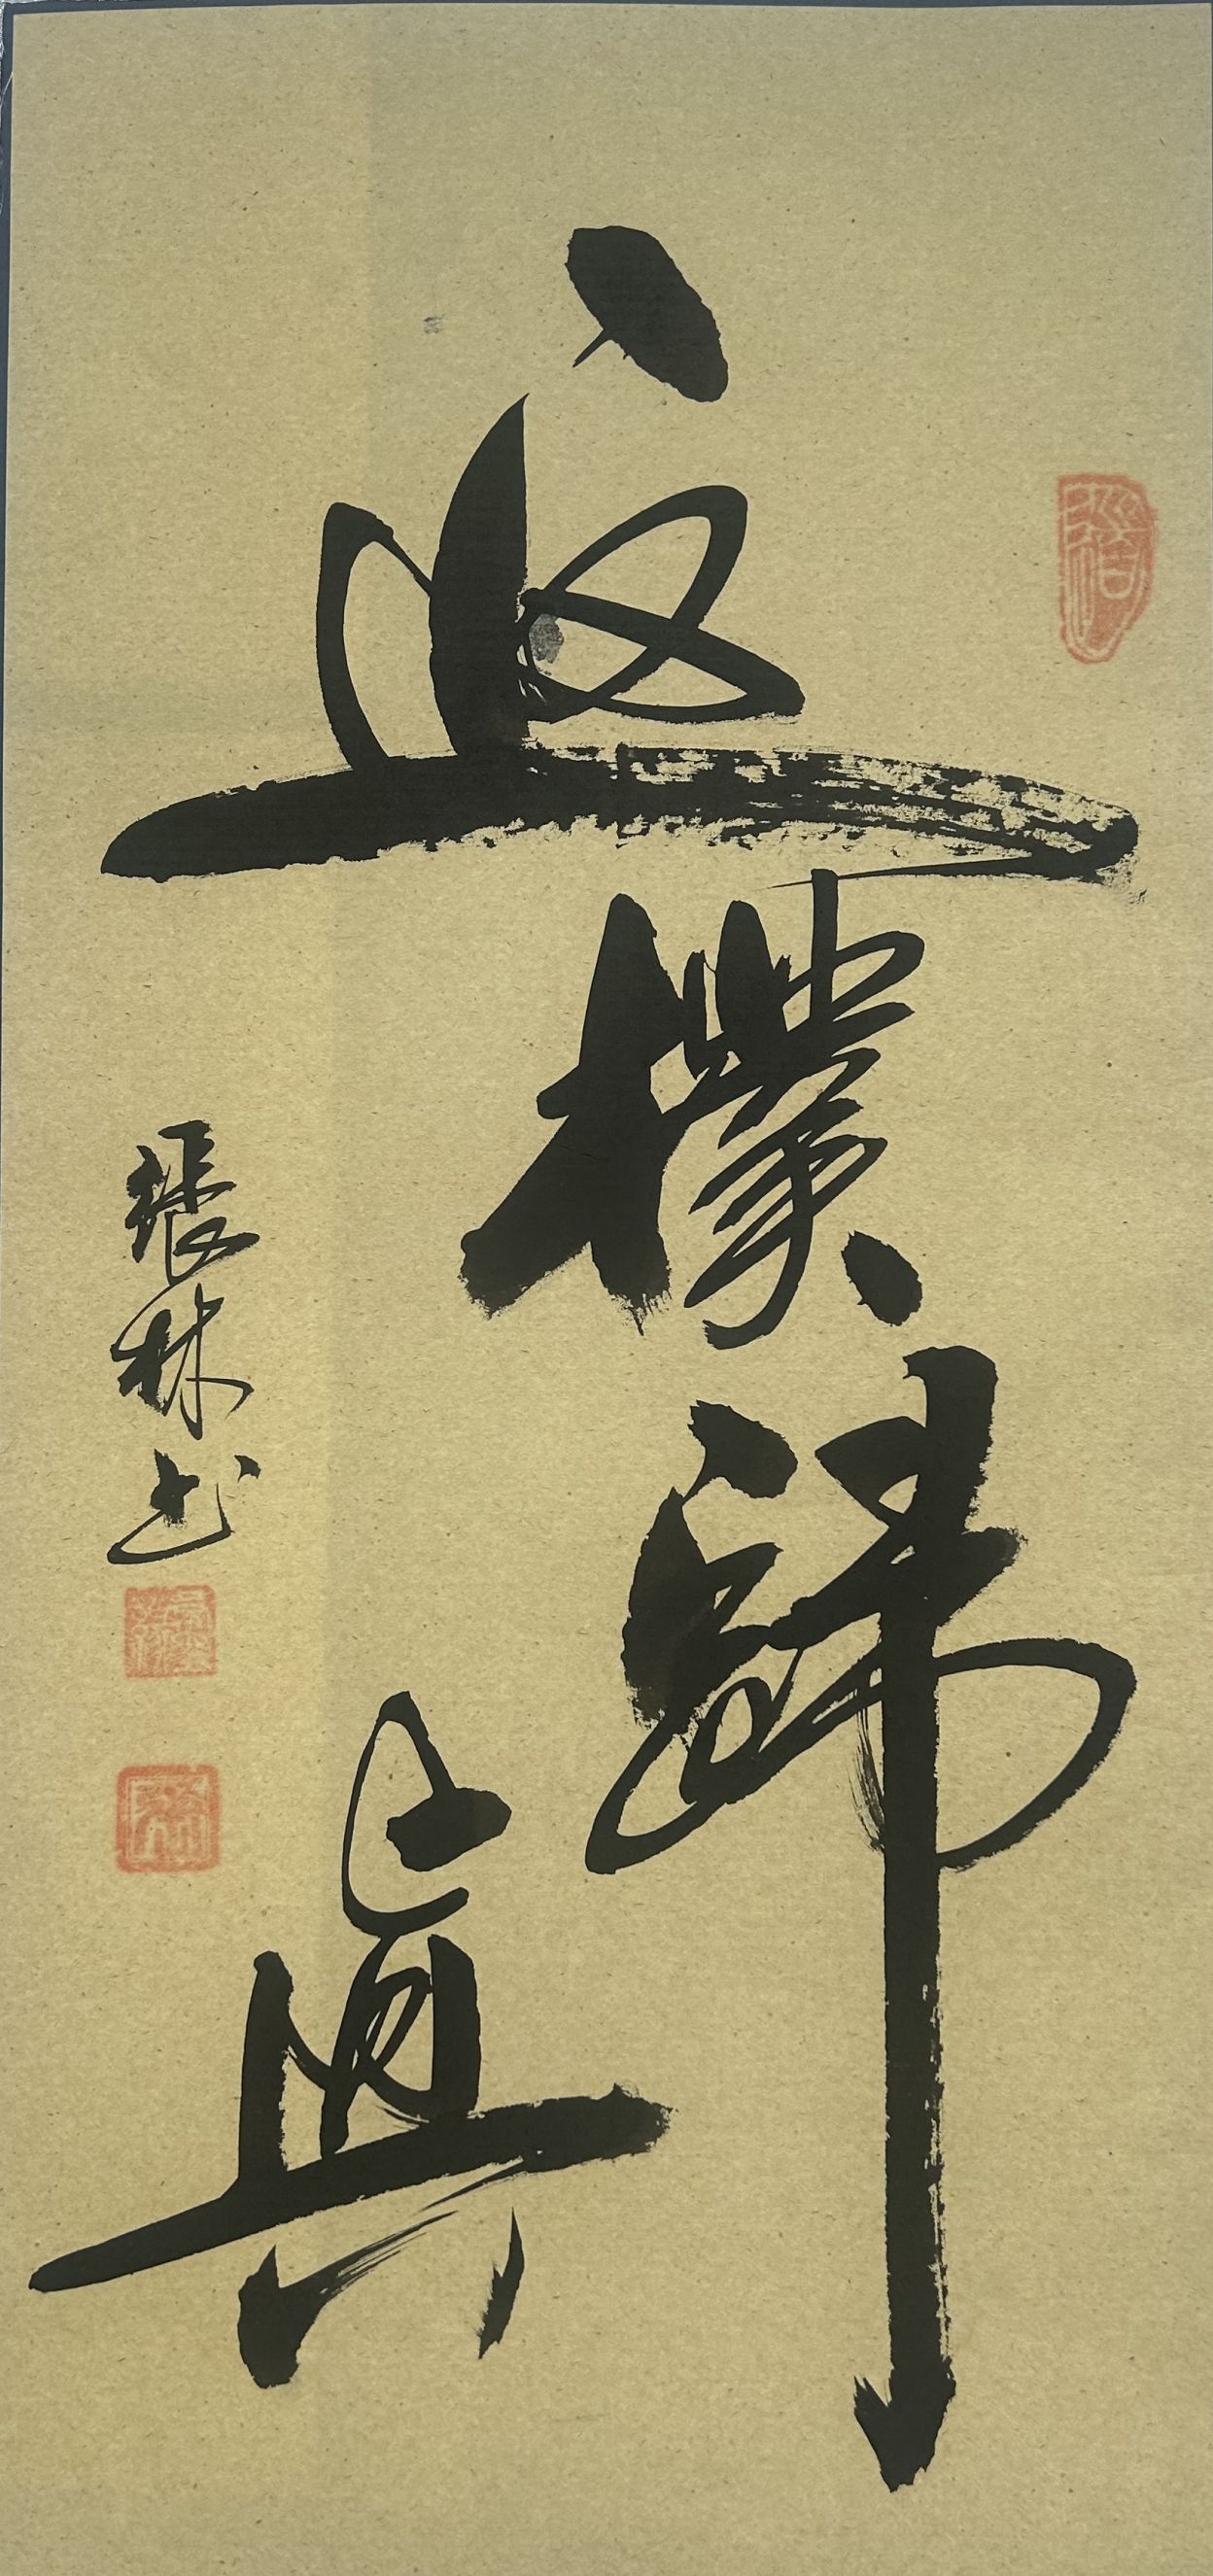 返樸歸真
張林书